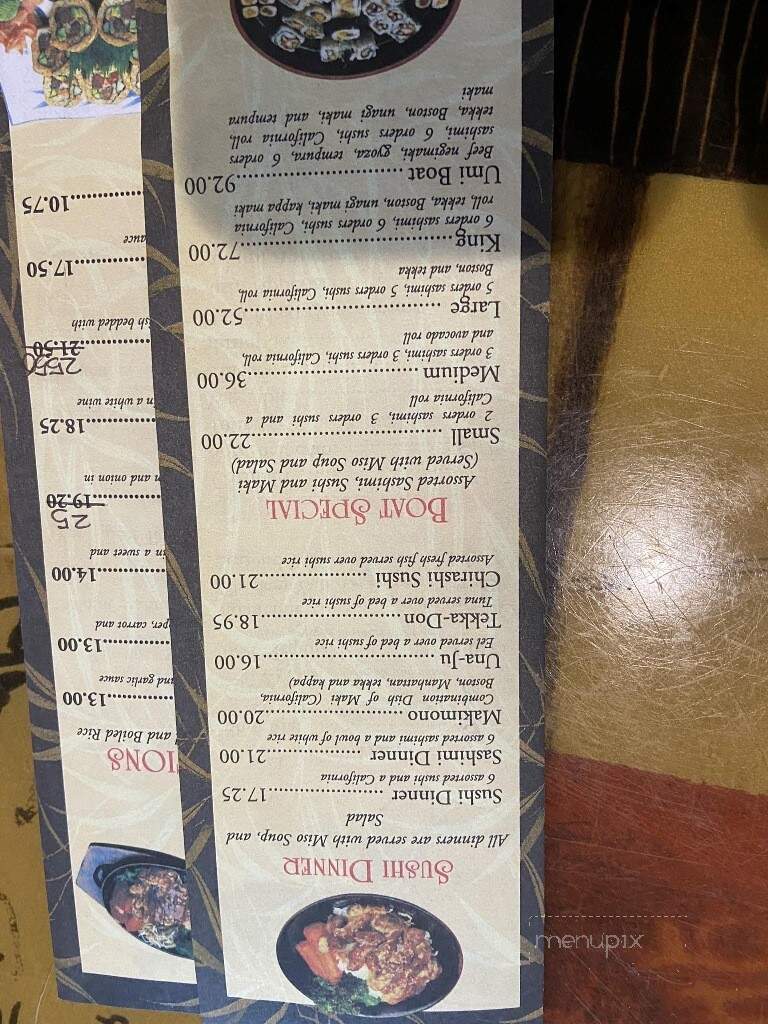 SUSHI DINNER
All dinners are served with Miso Soup, and
Salad
Sushi Dinner.....................17.25
6 assorted sushi and a California
Sashimi Dinner................21.00
6 assorted sashimi and a bowl of white rice
Makimono.......................20.00
Combination Dish of Maki (California,
Boston, Manhattan, tekka and kappa)
Una-Ju..............................16.00
Eel served over a bed of sushi rice
Tekka-Don.......................18.95
Tuna served over a bed of sushi rice
Chirashi Sushi...................21.00
Assorted fresh fish served over sushi rice
BOAT SPECIAL
Assorted Sashimi, Sushi and Maki
(Served with Miso Soup and Salad)
Small................................22.00
2 orders sashimi, 3 orders sushi and a
California roll
Medium............................36.00
3 orders sashimi, 3 orders sushi, California roll,
and avocado roll
Large................................52.00
5 orders sashimi, 5 orders sushi, California roll,
Boston, and tekka
King..................................72.00
6 orders sashimi, 6 orders sushi, California
roll, tekka, Boston, unagi maki, kappa maki
Umi Boat..........................92.00
Beef negimaki, gyoza, tempura, 6 orders
sashimi, 6 orders sushi, California roll,
tekka, Boston, unagi maki, and tempura
maki
TIONS
and Boiled Rice
.........13.00
and garlic sauce
.........13.00
per, carrot and
.........14.00
in a sweet and
.........19.20
25
n and onion in
.........18.25
n a white wine
.........21.50
2550
sh bedded with
.........17.50
auce
.........10.75
menupix